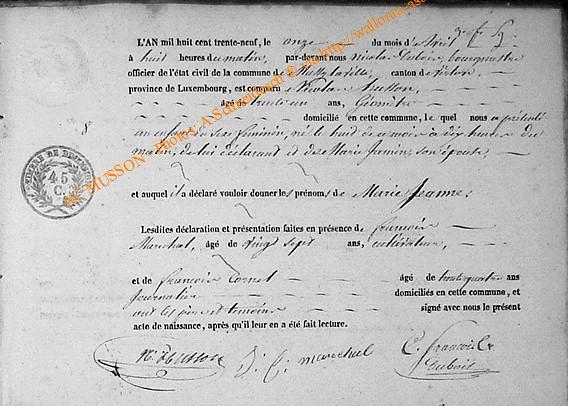 L'AN mil huit cent trente-neuf, le onze du mois d'avril
à huit heures du matin, par-devant nous nicolas Dubois, bourgmestre
officier de l'état civil de la commune de Mussy la ville, canton de
province de Luxembourg, est comparu Nicolas husson,
âgé de trente un ans, Géomètre
domicilié en cette commune, le quel nous a présenté
8 un enfant du sexe féminin, né le huit de ce mois à dix heures du
matin, de lui déclarant et de Marie Jamin, son épouse,
TIMBRE DE
45
C.
et auquel il a déclaré vouloir donner les prénoms de Marie Jeanne;
Lesdites déclaration et présentation faites en présence de françois
Marechal, âgé de vingt sept ans, cultivateur,
et de françois Cornet âgé de trente quatre ans
journalier domiciliés en cette commune, et
ont les père et témoins signé avec nous le présent
acte de naissance, après qu'il leur en a été fait lecture.
N. Husson
marechal
C. francois
Dubois
MC MUSSON - Photos A.Schoenschett © via http://wallonia-as